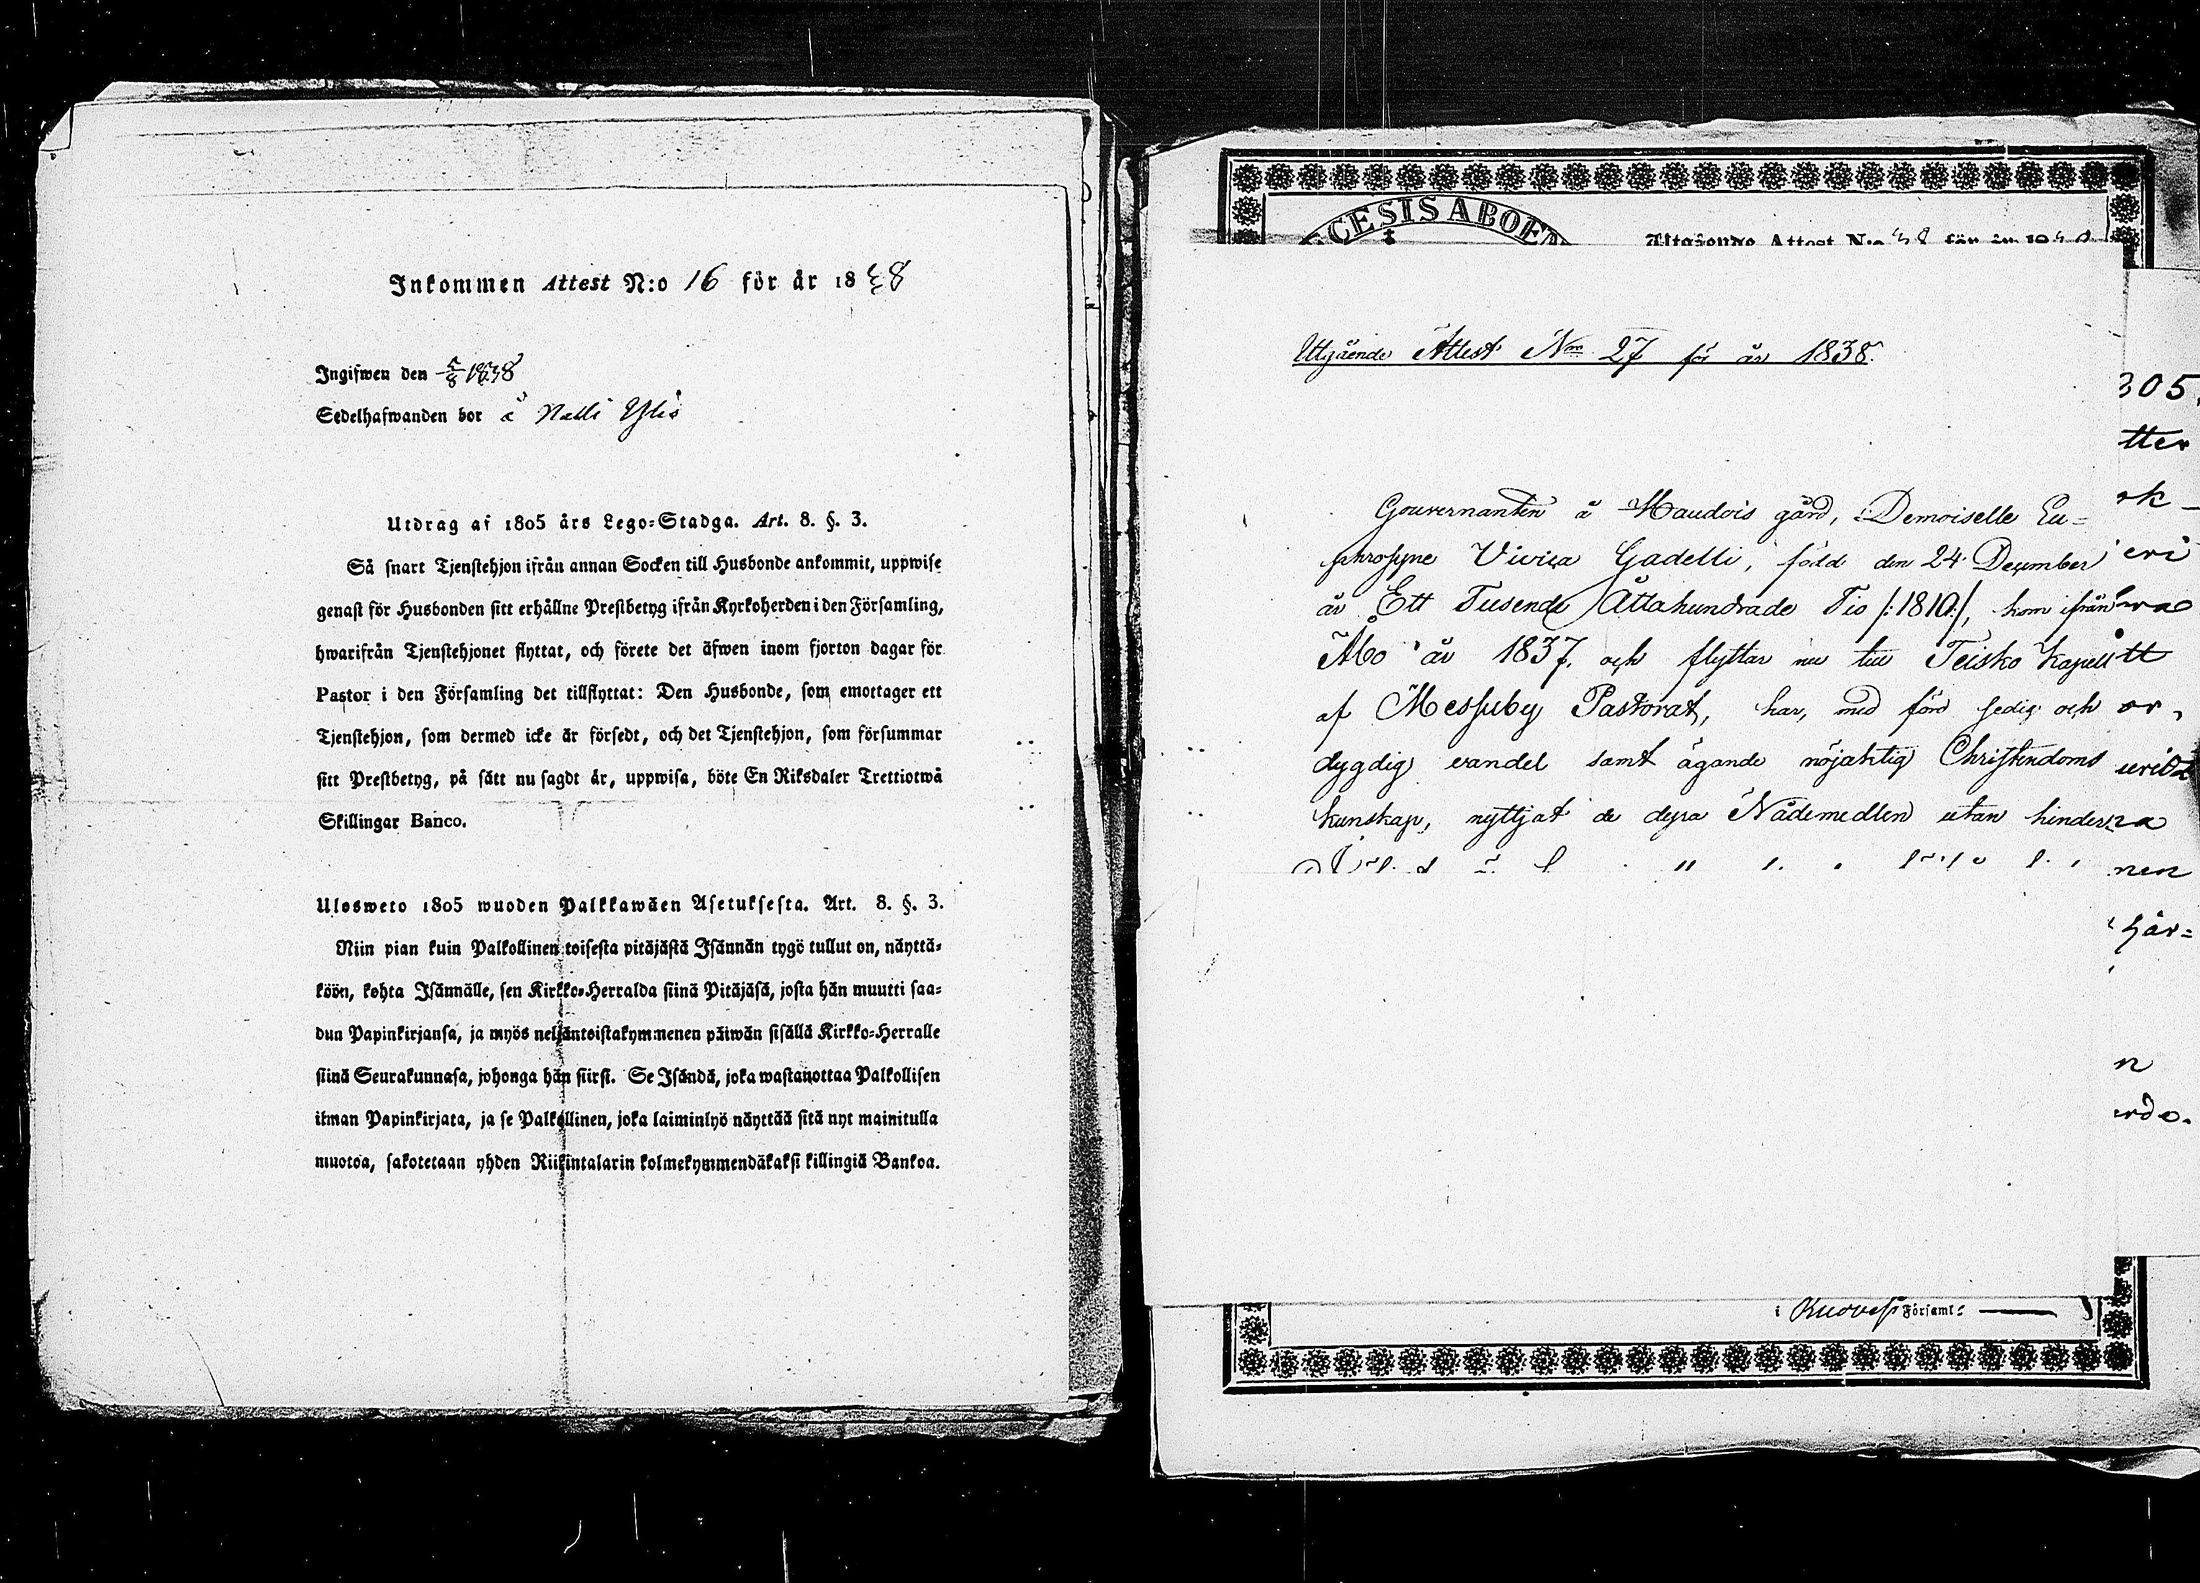 Inkommen Attest N:o 16 för år 1838
Ingifwen den 5/8 1838
Sedelhafwanden bor å Nalli Ylis
Utdrag af 1805 års Lego-Stadga. Art. 8. §. 3.
Så snart Tjenstehjon ifrån annan Socken till Husbonde ankommit, uppwise
genast för Husbonden sitt erhållne Prestbetyg ifrån Kyrkoherden i den Församling,
hwarifrån Tjenstehjonet flyttat, och förete det äfwen inom fjorton dagar för
Pastor i den Församling det tillflyttat: Den Husbonde, som emottager ett
Tjenstehjon, som dermed icke är försedt, och det Tjenstehjon, som försummar
sitt Prestbetyg, på sätt nu sagdt är, uppwisa, böte En Riksdaler Trettiotwå
Skillingar Banco.
Ulosweto 1805 wuoden Palkkawäen Asetuksesta. Art. 8. §. 3.
Niin pian kuin Palkollinen toisesta pitäjästä Isännän tygö tullut on, näyttä-
köön, kohta Isännälle, sen Kirkko-Herralda siinä Pitäjäsä, josta hän muutti saa-
dun Papinkirjansa, ja myös neljäntoistakymmenen päiwän sisällä Kirkko-Herralle
siinä Seurakunnasa, johonga hän siirsi. Se Isändä, joka wastanottaa Palkollisen
ilman Papinkirjata, ja se Palkollinen, joka laiminlyö näyttää sitä nyt mainitulla
muotoa, sakotetaan yhden Riikintalarin kolmekymmendäkaksi killingiä Bankoa.
CESIS ABOE
Utgående Attest N:o 38 för år 18
Utgående Attest Nro 27 för år 1838.
Gouvernanten å Haudois gård, Demoiselle Eu-
phrosyne Vivica Gadelli, född den 24 December
år Ett Tusende Åttahundrade Tio /:1810:/, kom ifrån
Åbo år 1837. och flyttar nu till Teisko Kapell
af Messuby Pastorat, har, med förd sedig och
dygdig vandel samt ägande nöjaktig Christendoms
kunskap, nyttjat de dyra Nådemedlen utan hinder
305.
tter
ok
eri
tt
or,
na
nen
här=
n
rde.
i Ruoves Församl: